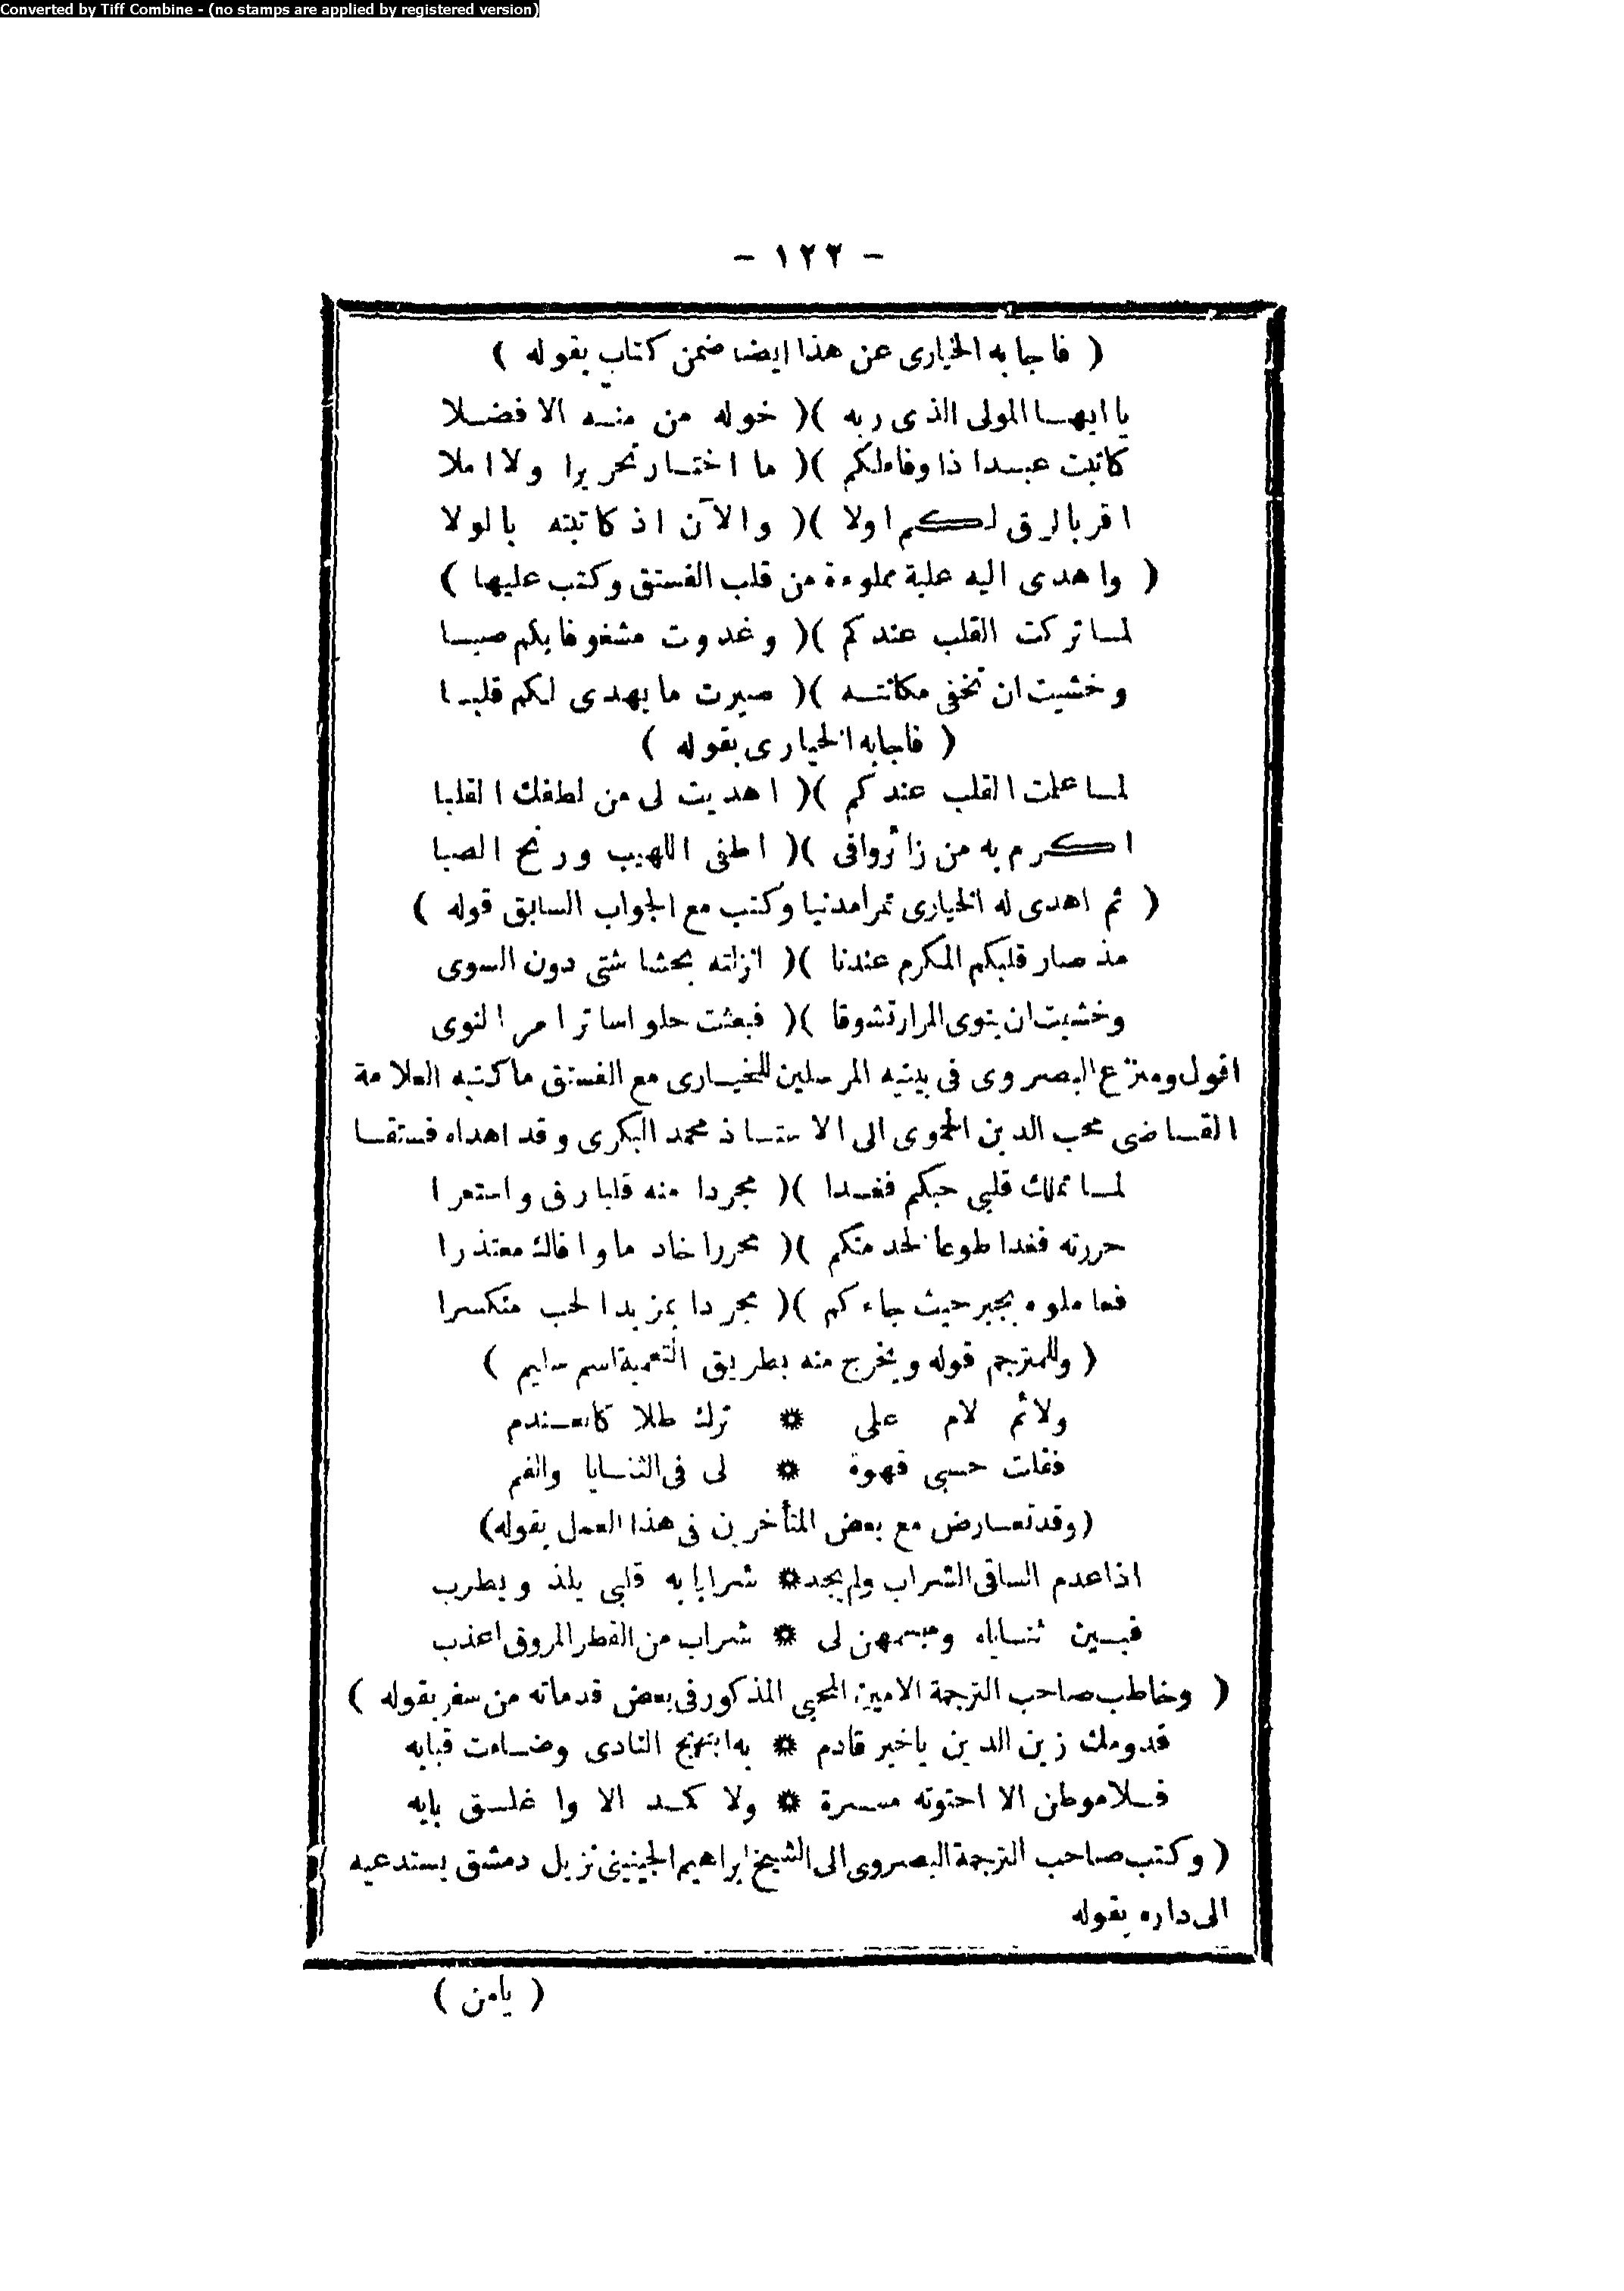 Converted by Tiff Combine - (no stamps are applied by registered version)
- ١٢٢ -
( فاجابه الخيارى عن هذا ايضا ضمن كتاب بقوله )
يا ايها المولى الذى ربه )( خوله من منه الافضلا
كاتبت عبدا ذا وفاءلكم )( ما اختار تحريرا ولا املا
اقر بالرق لكم اولا )( والآن اذ كاتبته بالولا
( واهدى اليه علبة مملوءة من قلب الفستق وكتب عليها )
لما تركت القلب عندكم )( وغدوت مشغوفا بكم صبا
وخشيت ان تخفى مكانته )( صيرت ما يهدى لكم قلبا
( فاجابه الخيارى بقوله )
لما علمت القلب عندكم )( اهديت لى من لطفك القلبا
اكرم به من زائر وافى )( اطفى اللهيب ورنح الصبا
( ثم اهدى له الخيارى تمرا مدنيا وكتب مع الجواب السابق قوله )
مذ صار قلبكم المكرم عندنا )( انزلته بحشاشتى دون السوى
وخشيت ان ينوى المزار تشوقا )( فبعثت حلوا ساترا مر النوى
اقول ومنزع البصروى فى بيتيه المرسلين للخيارى مع الفستق ما كتبه العلامة
القاضى محب الدين الحموى الى الاستاذ محمد البكرى وقد اهداه فستقا
لما تملك قلبى حبكم فغدا )( مجردا منه قلبا رق واستعرا
حررته فغدا طوعا لخدمتكم )( محررا خادما وافاك معتذرا
فعاملوه بجبر حيث جاءكم )( مجردا بمزيد الحب منكسرا
( وللمترجم قوله ويخرج منه بطريق التعمية اسم سليم )
ولائم لام على ❊ ترك طلا كالعندم
فقلت حسبى قهوة ❊ لى فى الثنايا والفم
(وقد تعارض مع بعض المتأخرين فى هذا العمل بقوله)
اذا عدم الساقى الشراب ولم يجد ❊ شرابا به قلبى يلذ ويطرب
فبين ثناياه ومبسمهن لى ❊ شراب من القطر المروق اعذب
( وخاطب صاحب الترجمة الامين المحبى المذكور فى بعض قدماته من سفر بقوله )
قدومك زين الدين يا خير قادم ❊ به ابتهج النادى وضاءت قبابه
فلا موطن الا احتوته مسرة ❊ ولا كمد الا وا غلق بابه
( وكتب صاحب الترجمة البصروى الى الشيخ ابراهيم الجينينى نزيل دمشق يستدعيه
الى داره بقوله
( يامن )